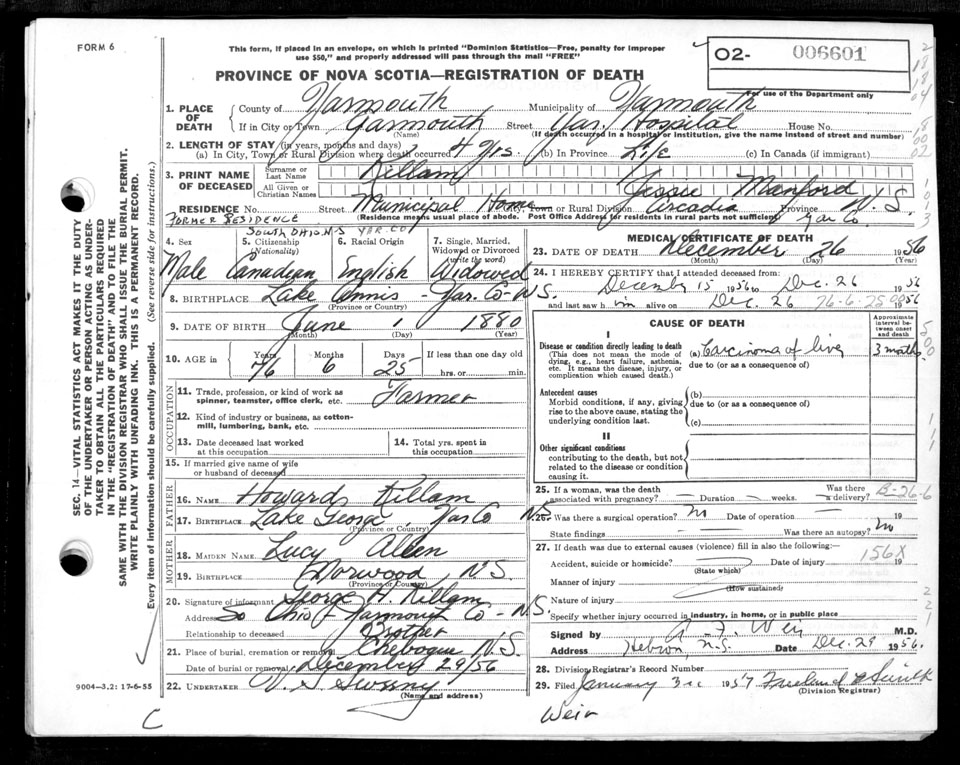 FORM 6
This form, if placed in an envelope, on which is printed "Dominion Statistics—Free, penalty for improper
use $50," and properly addressed will pass through the mail "FREE"
02- 006601
For use of the Department only
PROVINCE OF NOVA SCOTIA—REGISTRATION OF DEATH
1. PLACE OF DEATH
County of Yarmouth Municipality of Yarmouth
If in City or Town Yarmouth Street Yar. Hospital House No.
(Name) (If death occurred in a hospital or institution, give the name instead of street and number)
2. LENGTH OF STAY (in years, months and days)
(a) In City, Town or Rural Division where death occurred 4 yrs (b) In Province Life (c) In Canada (if immigrant)
3. PRINT NAME OF DECEASED
Surname or Last Name Killam
All Given or Christian Names Jessie Manford
RESIDENCE No. Street Municipal Home City, Town or Rural Division Arcadia Province N.S.
(Residence means usual place of abode. Post Office Address for residents in rural parts not sufficient) Yar Co.
FORMER RESIDENCE
SOUTH OHIO N-S YAR. CO
4. Sex Male
5. Citizenship (Nationality) Canadian
6. Racial Origin English
7. Single, Married, Widowed or Divorced (write the word) Widowed
8. BIRTHPLACE Lake Annis - Yar. Co- N.S.
(Province or Country)
9. DATE OF BIRTH June 1 1880
(Month) (Day) (Year)
10. AGE in Years 76 Months 6 Days 25 If less than one day old
hrs. or min.
OCCUPATION
11. Trade, profession, or kind of work as
spinner, teamster, office clerk, etc. Farmer
12. Kind of industry or business, as cotton-
mill, lumbering, bank, etc.
13. Date deceased last worked
at this occupation
14. Total yrs. spent in
this occupation
15. If married give name of wife
or husband of deceased
FATHER
16. NAME Howard Killam
17. BIRTHPLACE Lake George Yar Co N.S.
(Province or Country)
MOTHER
18. MAIDEN NAME Lucy Allen
19. BIRTHPLACE Norwood N.S.
(Province or Country)
20. Signature of informant George H. Killam
Address So Ohio Yarmouth Co - N.S.
Relationship to deceased Brother
21. Place of burial, cremation or removal Chebogue N.S.
Date of burial or removal December 29/56
22. UNDERTAKER V. S. Sweeny
(Name and address)
MEDICAL CERTIFICATE OF DEATH
23. DATE OF DEATH December 26 1956
(Month) (Day) (Year)
24. I HEREBY CERTIFY that I attended deceased from:
December 15 1956 to Dec. 26 1956
and last saw him alive on Dec. 26 1956
CAUSE OF DEATH
Approximate interval between onset and death
I
Disease or condition directly leading to death
(This does not mean the mode of
dying, e.g., heart failure, asthenia,
etc. It means the disease, injury, or
complication which caused death.)
(a) Carcinoma of liver 3 months
due to (or as a consequence of)
Antecedent causes
Morbid conditions, if any, giving
rise to the above cause, stating the
underlying condition last.
(b)
due to (or as a consequence of)
(c)
II
Other significant conditions
contributing to the death, but not
related to the disease or condition
causing it.
25. If a woman, was the death
associated with pregnancy? — Duration — weeks. Was there a delivery? B-26-6
26. Was there a surgical operation? No Date of operation — 19
State findings — Was there an autopsy? No
27. If death was due to external causes (violence) fill in also the following:—
Accident, suicide or homicide? Date of injury 19 156X
(State which)
Manner of injury
(How sustained)
Nature of injury
Specify whether injury occurred in industry, in home, or in public place
Signed by A. F. Weir M.D.
Address Hebron, N.S. Date Dec. 29 1956.
28. Division Registrar's Record Number
29. Filed January 3rd 1957 Freeland Smith
(Division Registrar)
Weir
C
9004—3.2: 17-6-55
SEC. 14—VITAL STATISTICS ACT MAKES IT THE DUTY
OF THE UNDERTAKER OR PERSON ACTING AS UNDER-
TAKER TO OBTAIN ALL THE PARTICULARS REQUIRED
IN THE "REGISTRATION OF DEATH" AND TO FILE THE
SAME WITH THE DIVISION REGISTRAR WHO SHALL ISSUE THE BURIAL PERMIT.
WRITE PLAINLY WITH UNFADING INK. THIS IS A PERMANENT RECORD.
Every item of information should be carefully supplied. (See reverse side for instructions.)